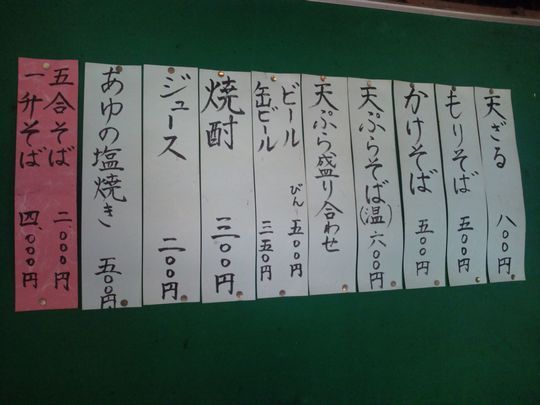 天ざる 八〇〇円
もりそば 五〇〇円
かけそば 五〇〇円
天ぷらそば(温) 六〇〇円
天ぷら盛り合わせ
ビール びん 五〇〇円
缶ビール 三五〇円
焼酎 三〇〇円
ジュース 二〇〇円
あゆの塩焼き 五〇〇円
五合そば 二、〇〇〇円
一升そば 四、〇〇〇円